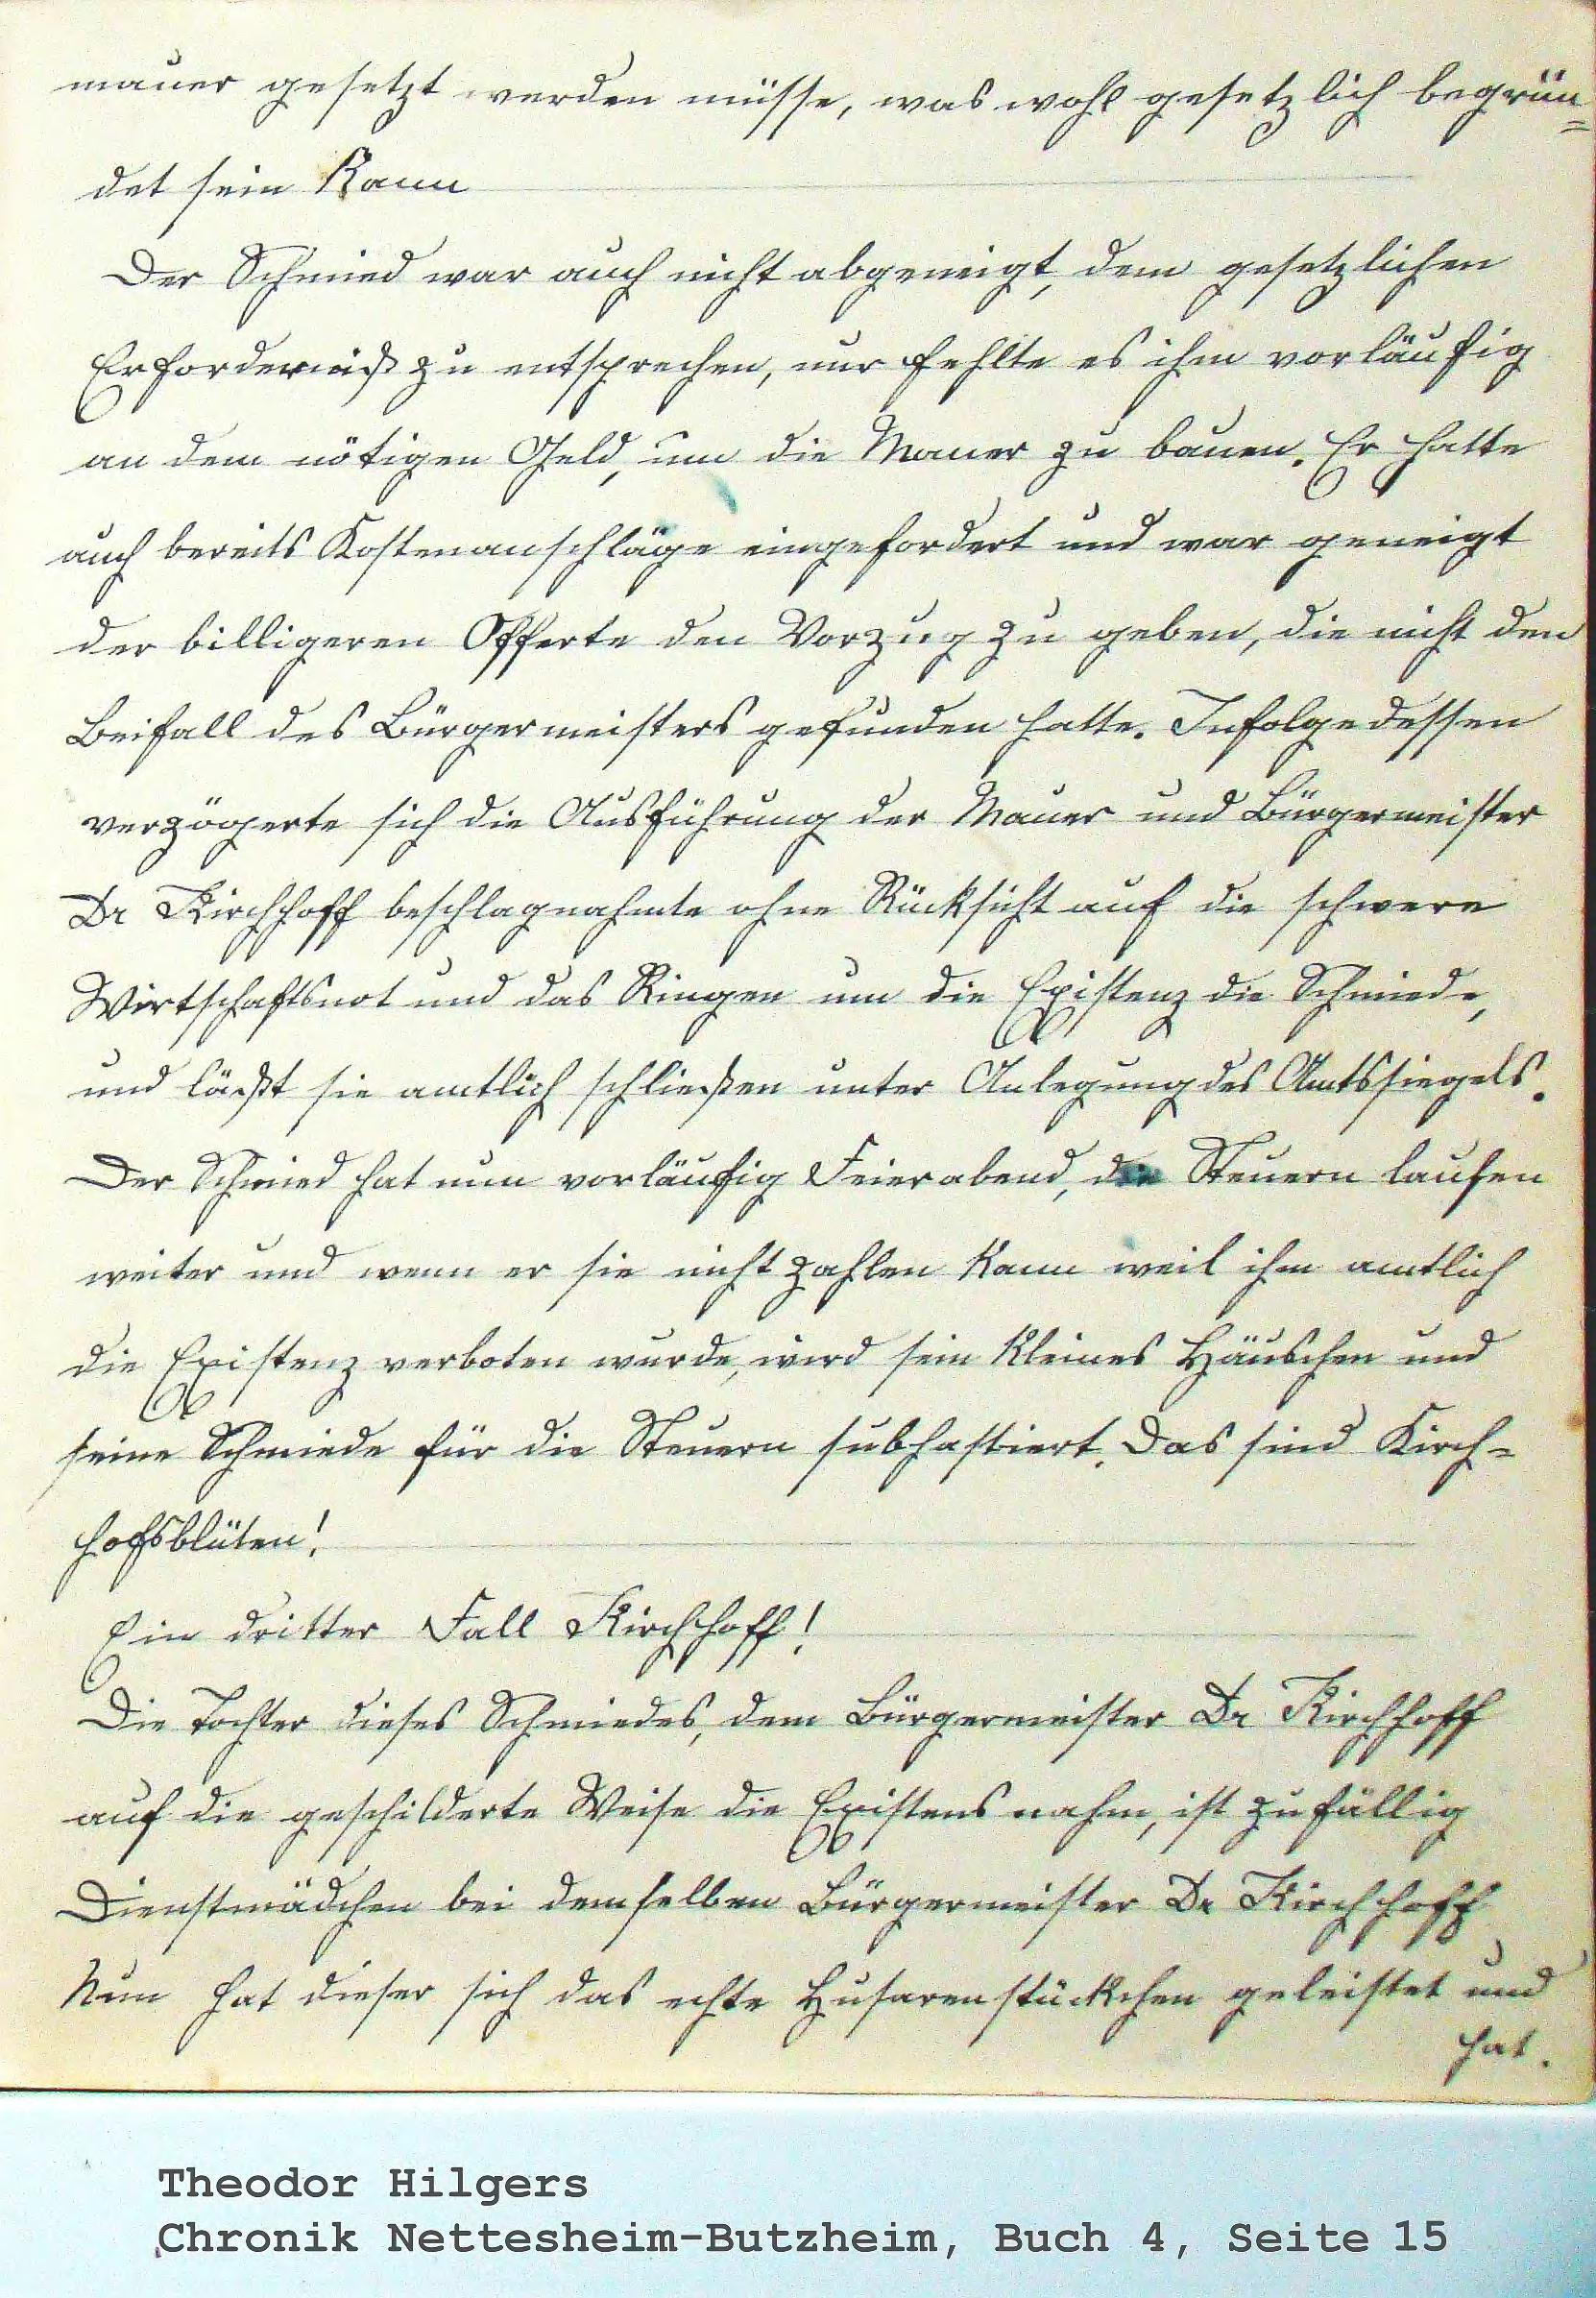 mauer gesetzt werden müsse, was wohl gesetzlich begrün=
det sein kann
Der Schmied war auch nicht abgeneigt, dem gesetzlichen
Erforderniß zu entsprechen, nur fehlte es ihm vorläufig
an dem nötigen Geld, um die Mauer zu bauen. Er hatte
auch bereits Kostenanschläge eingefordert und war geneigt
der billigeren Offerte den Vorzug zu geben, die nicht den
Beifall des Bürgermeisters gefunden hatte. Infolgedessen
verzögerte sich die Ausführung der Mauer und Bürgermeister
Dr Kirchhoff beschlagnahmte ohne Rücksicht auf die schwere
Wirtschaftsnot und das Ringen um die Existenz die Schmiede,
und läßt sie amtlich schließen unter Anlegung des Amtssiegels.
Der Schmied hat nun vorläufig Feierabend, die Steuern laufen
weiter und wenn er sie nicht zahlen kann weil ihm amtlich
die Existenz verboten wurde, wird sein kleines Häuschen und
seine Schmiede für die Steuern subhastiert. Das sind Kirch=
hofsblüten!
Ein dritter Fall Kirchhoff!
Die Tochter dieses Schmiedes, dem Bürgermeister Dr Kirchhoff
auf die geschilderte Weise die Existens nahm, ist zufällig
Dienstmädchen bei demselben Bürgermeister Dr Kirchhoff
Nun hat dieser sich das echte Husarenstückchen geleistet und
hat.
Theodor Hilgers
Chronik Nettesheim-Butzheim, Buch 4, Seite 15